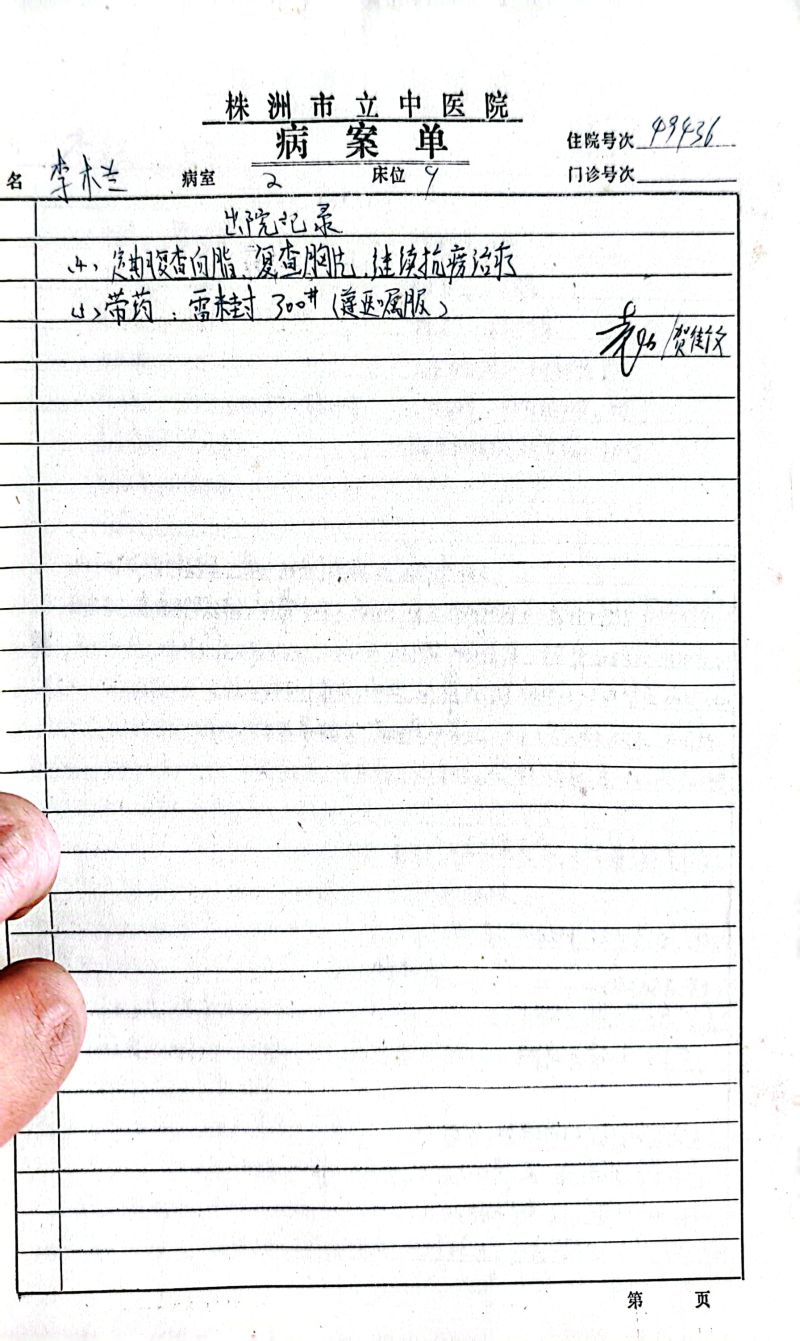 株洲市立中医院
病案单
住院号次 49436
名 李木兰 病室 2 床位 9 门诊号次
出院记录
(4)、定期复查血脂、复查胸片、继续抗痨治疗
(5)、带药：雷米封 300# (遵医嘱服)
/贺佳文
第 页